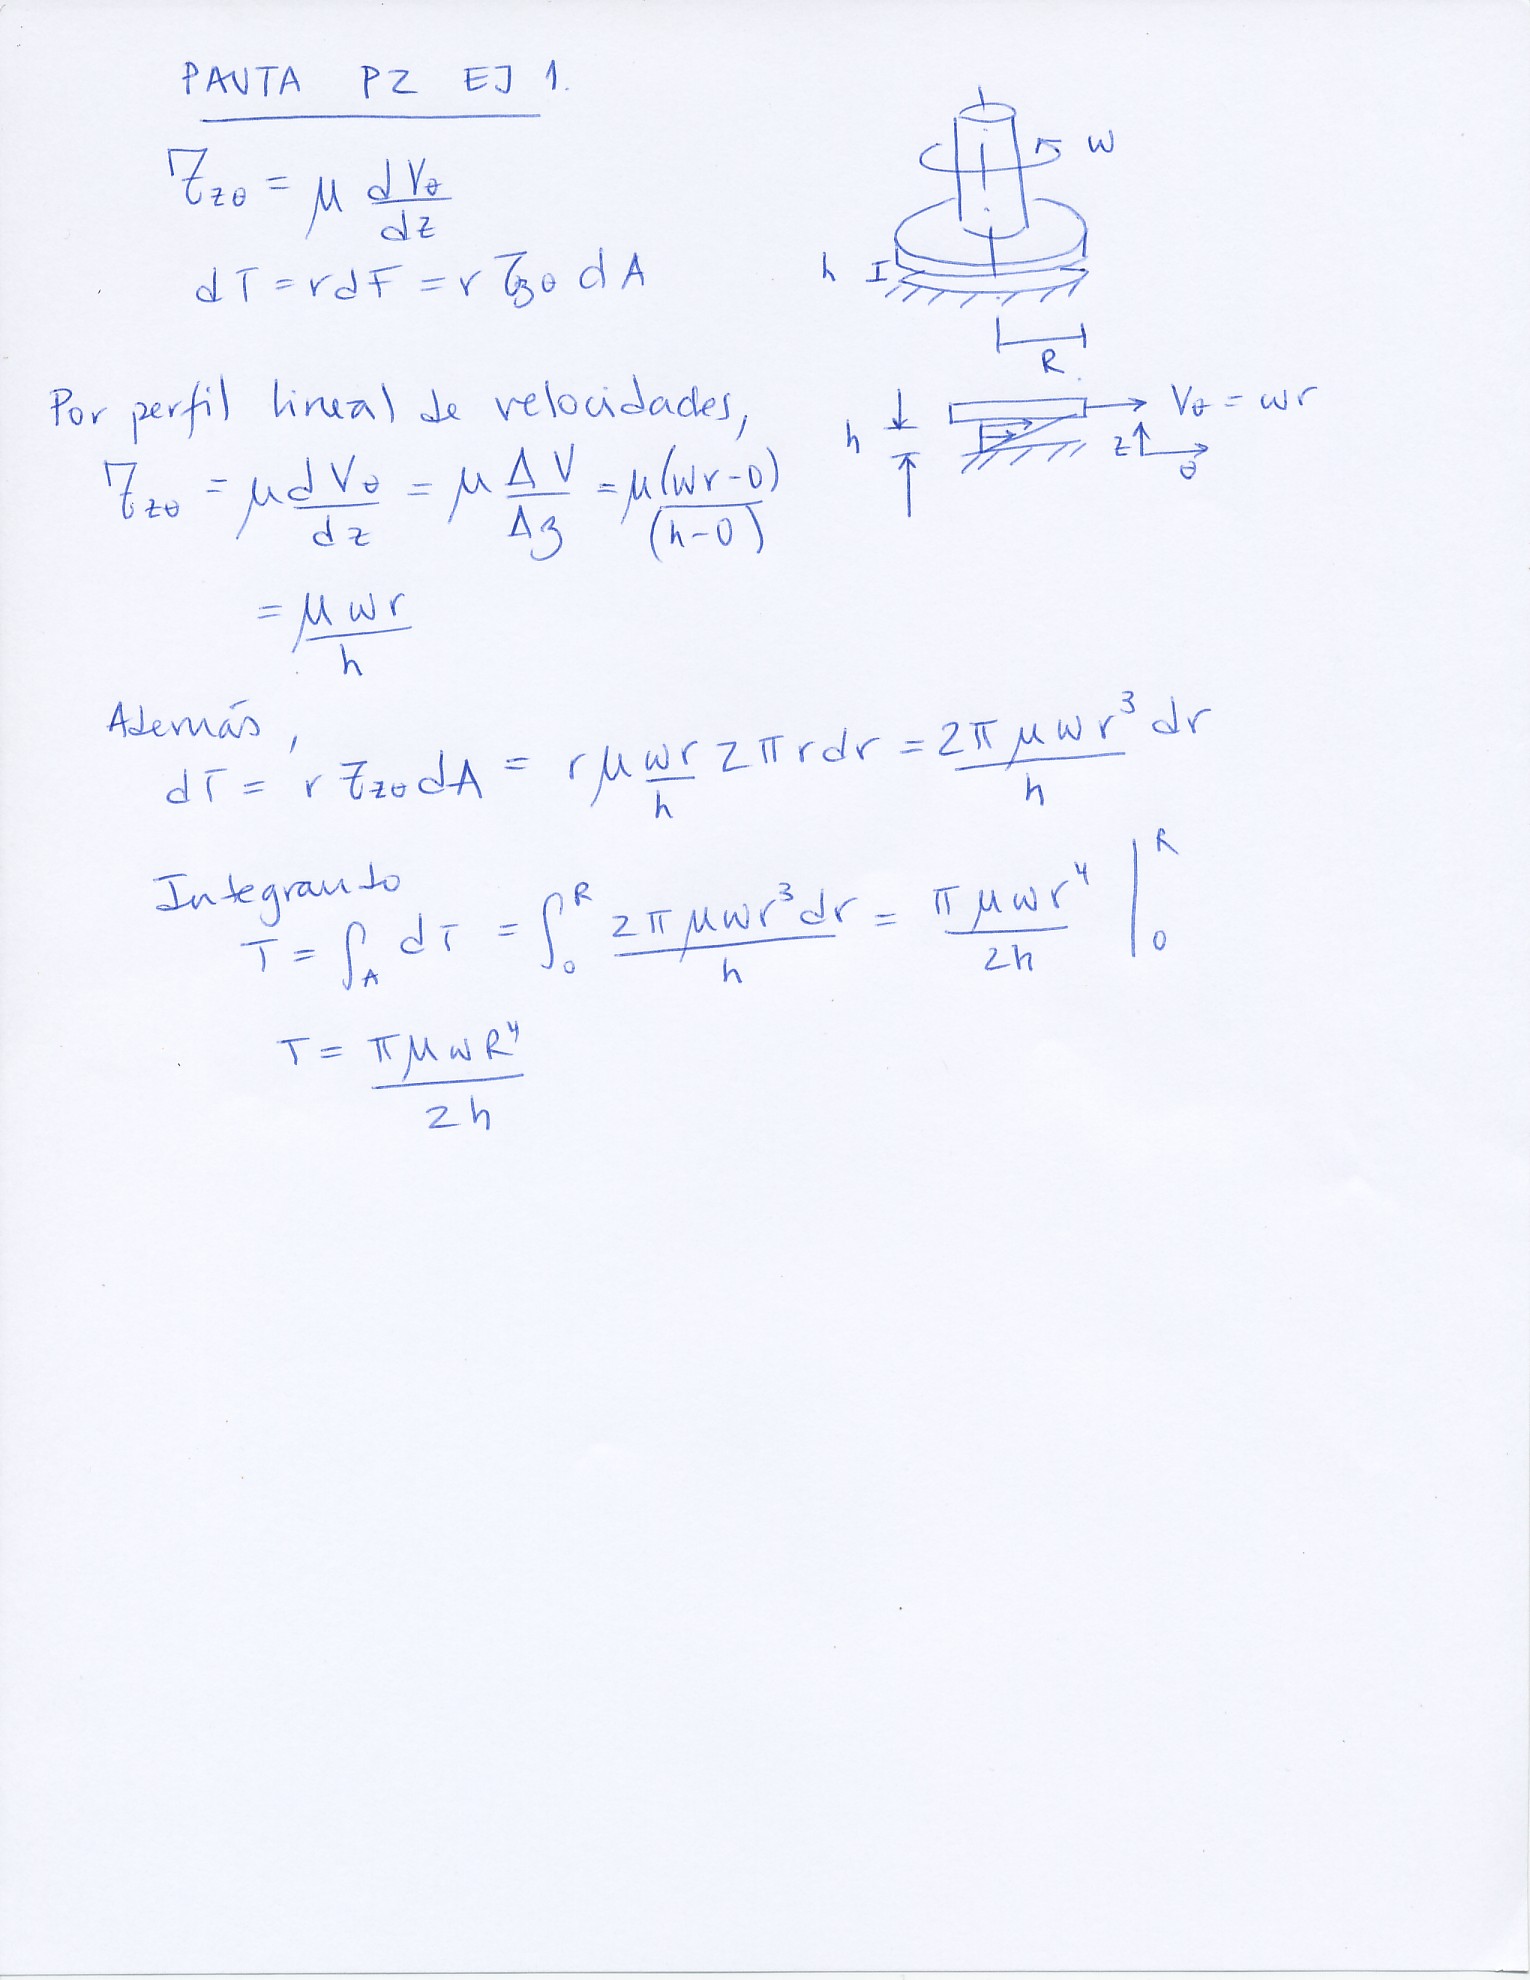 PAUTA P2 EJ 1.
τzθ = μ dVθ/dz
dT = r dF = r τzθ dA
ω
h
R
h
Vθ = ωr
z
θ
Por perfil lineal de velocidades,
τzθ = μ dVθ/dz = μ ΔV/Δz = μ(ωr-0)/(h-0)
= μωr/h
Además,
dT = r τzθ dA = r μ ωr/h 2πrdr = 2πμωr³/h dr
Integrando
T = ∫A dT = ∫0^R 2πμωr³dr/h = πμωr⁴/2h |0^R
T = πμωR⁴/2h